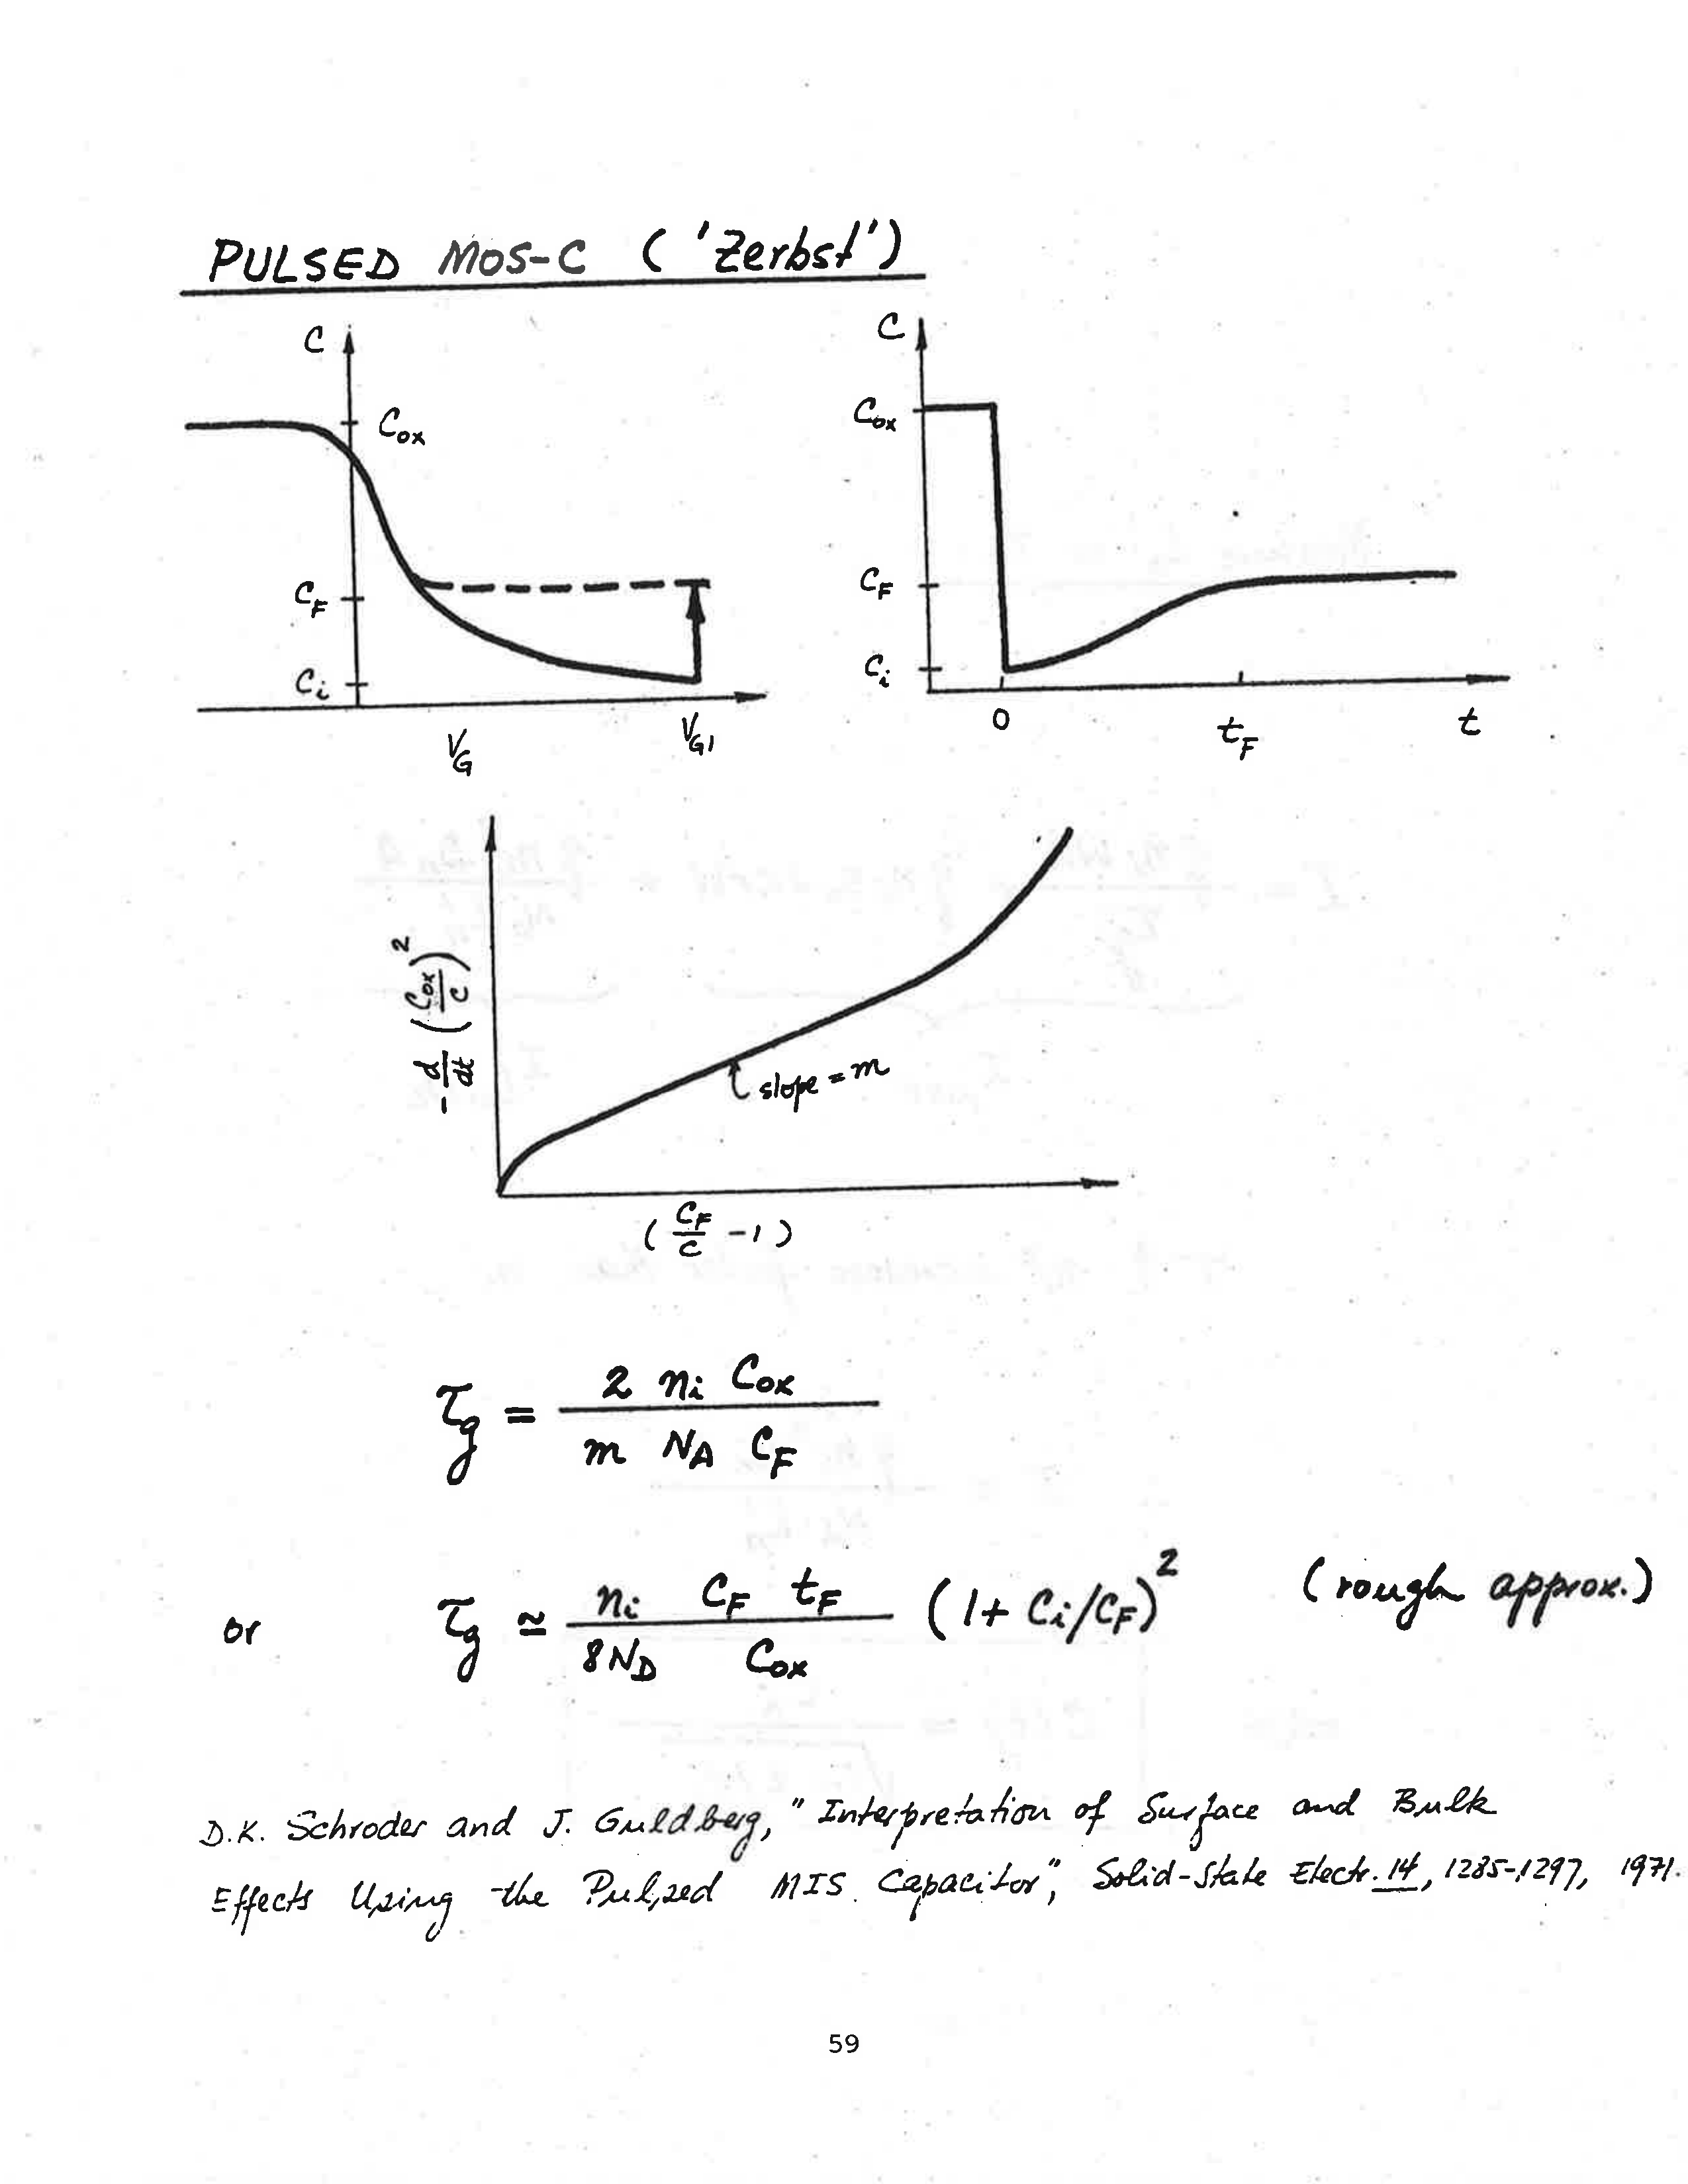 PULSED MOS-C ('Zerbst')
C
Cox
CF
Ci
VG
VG1
C
Cox
CF
Ci
0
tF
t
- d/dt (Cox/C)²
slope = m
(CF/C - 1)
τg = 2 ni Cox / m NA CF
or τg ≃ ni CF tF / 8ND Cox (1+ Ci/CF)² (rough approx.)
D.K. Schroder and J. Guldberg, "Interpretation of Surface and Bulk
Effects Using the Pulsed MIS Capacitor", Solid-State Electr. 14, 1285-1297, 1971.
59